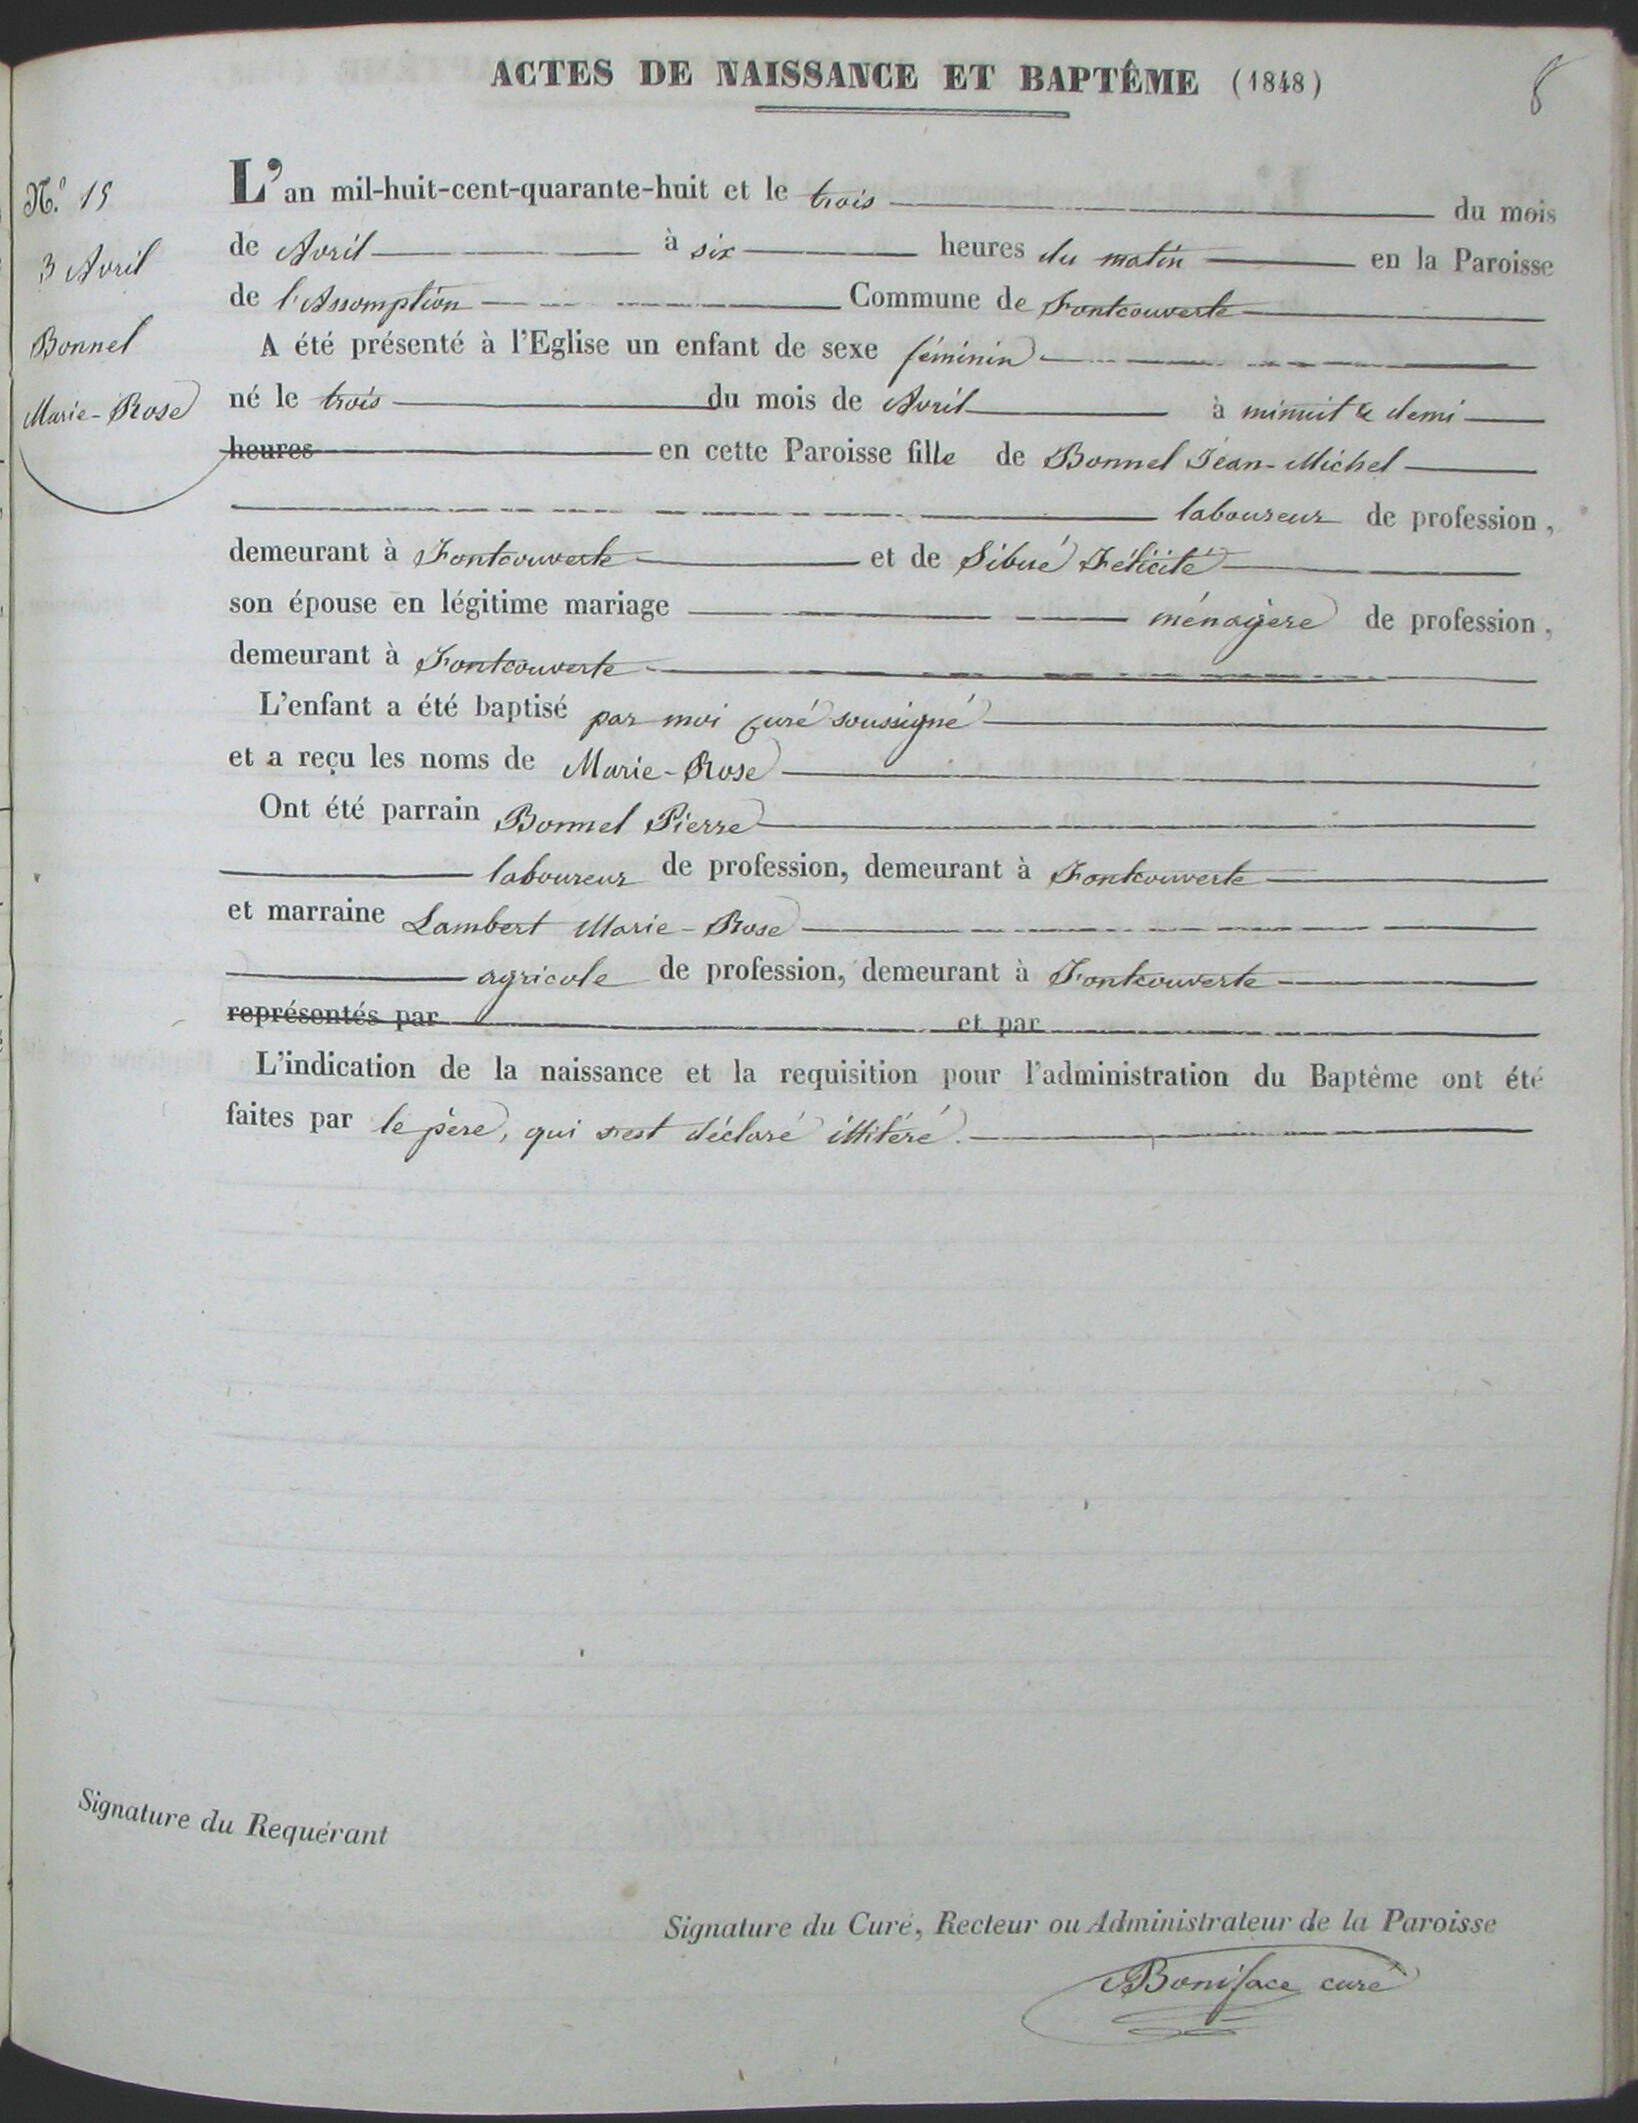 ACTES DE NAISSANCE ET BAPTÊME (1848)
8
N.º 15
3 Avril
Bonnel
Marie-Rose
L'an mil-huit-cent-quarante-huit et le trois du mois
de Avril à six heures du matin en la Paroisse
de l'Assomption Commune de Fontcouverte
A été présenté à l'Eglise un enfant de sexe féminin
né le trois du mois de Avril à minuit & demi
heures en cette Paroisse fille de Bonnel Jean-Michel
laboureur de profession,
demeurant à Fontcouverte et de Sibué Félicité
son épouse en légitime mariage ménagère de profession,
demeurant à Fontcouverte
L'enfant a été baptisé par moi curé soussigné
et a reçu les noms de Marie-Rose
Ont été parrain Bonnel Pierre
laboureur de profession, demeurant à Fontcouverte
et marraine Lambert Marie-Rose
agricole de profession, demeurant à Fontcouverte
représentés par et par
L'indication de la naissance et la requisition pour l'administration du Baptême ont été
faites par le père, qui s'est déclaré illitéré.
Signature du Requérant
Signature du Curé, Recteur ou Administrateur de la Paroisse
Boniface curé